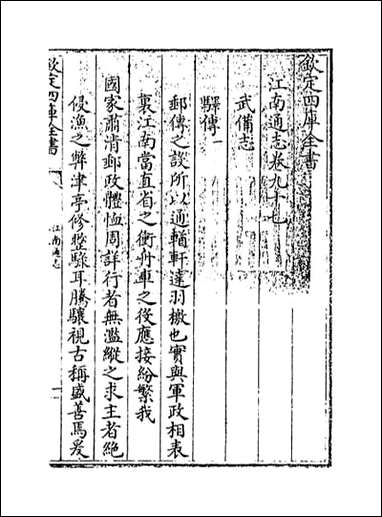 欽定四庫全書
江南通志卷九十七
武備志
驛傳一
郵傳之設所以通輶軒達羽檄也實與軍政相表
裏江南當直省之衝舟車之役應接紛繁我
國家肅清郵政體恤周詳行者無濫縱之求主者絶
侵漁之弊津亭修整騄耳騰驤視古稱盛善馬爰
欽定四庫全書
江南通志
一